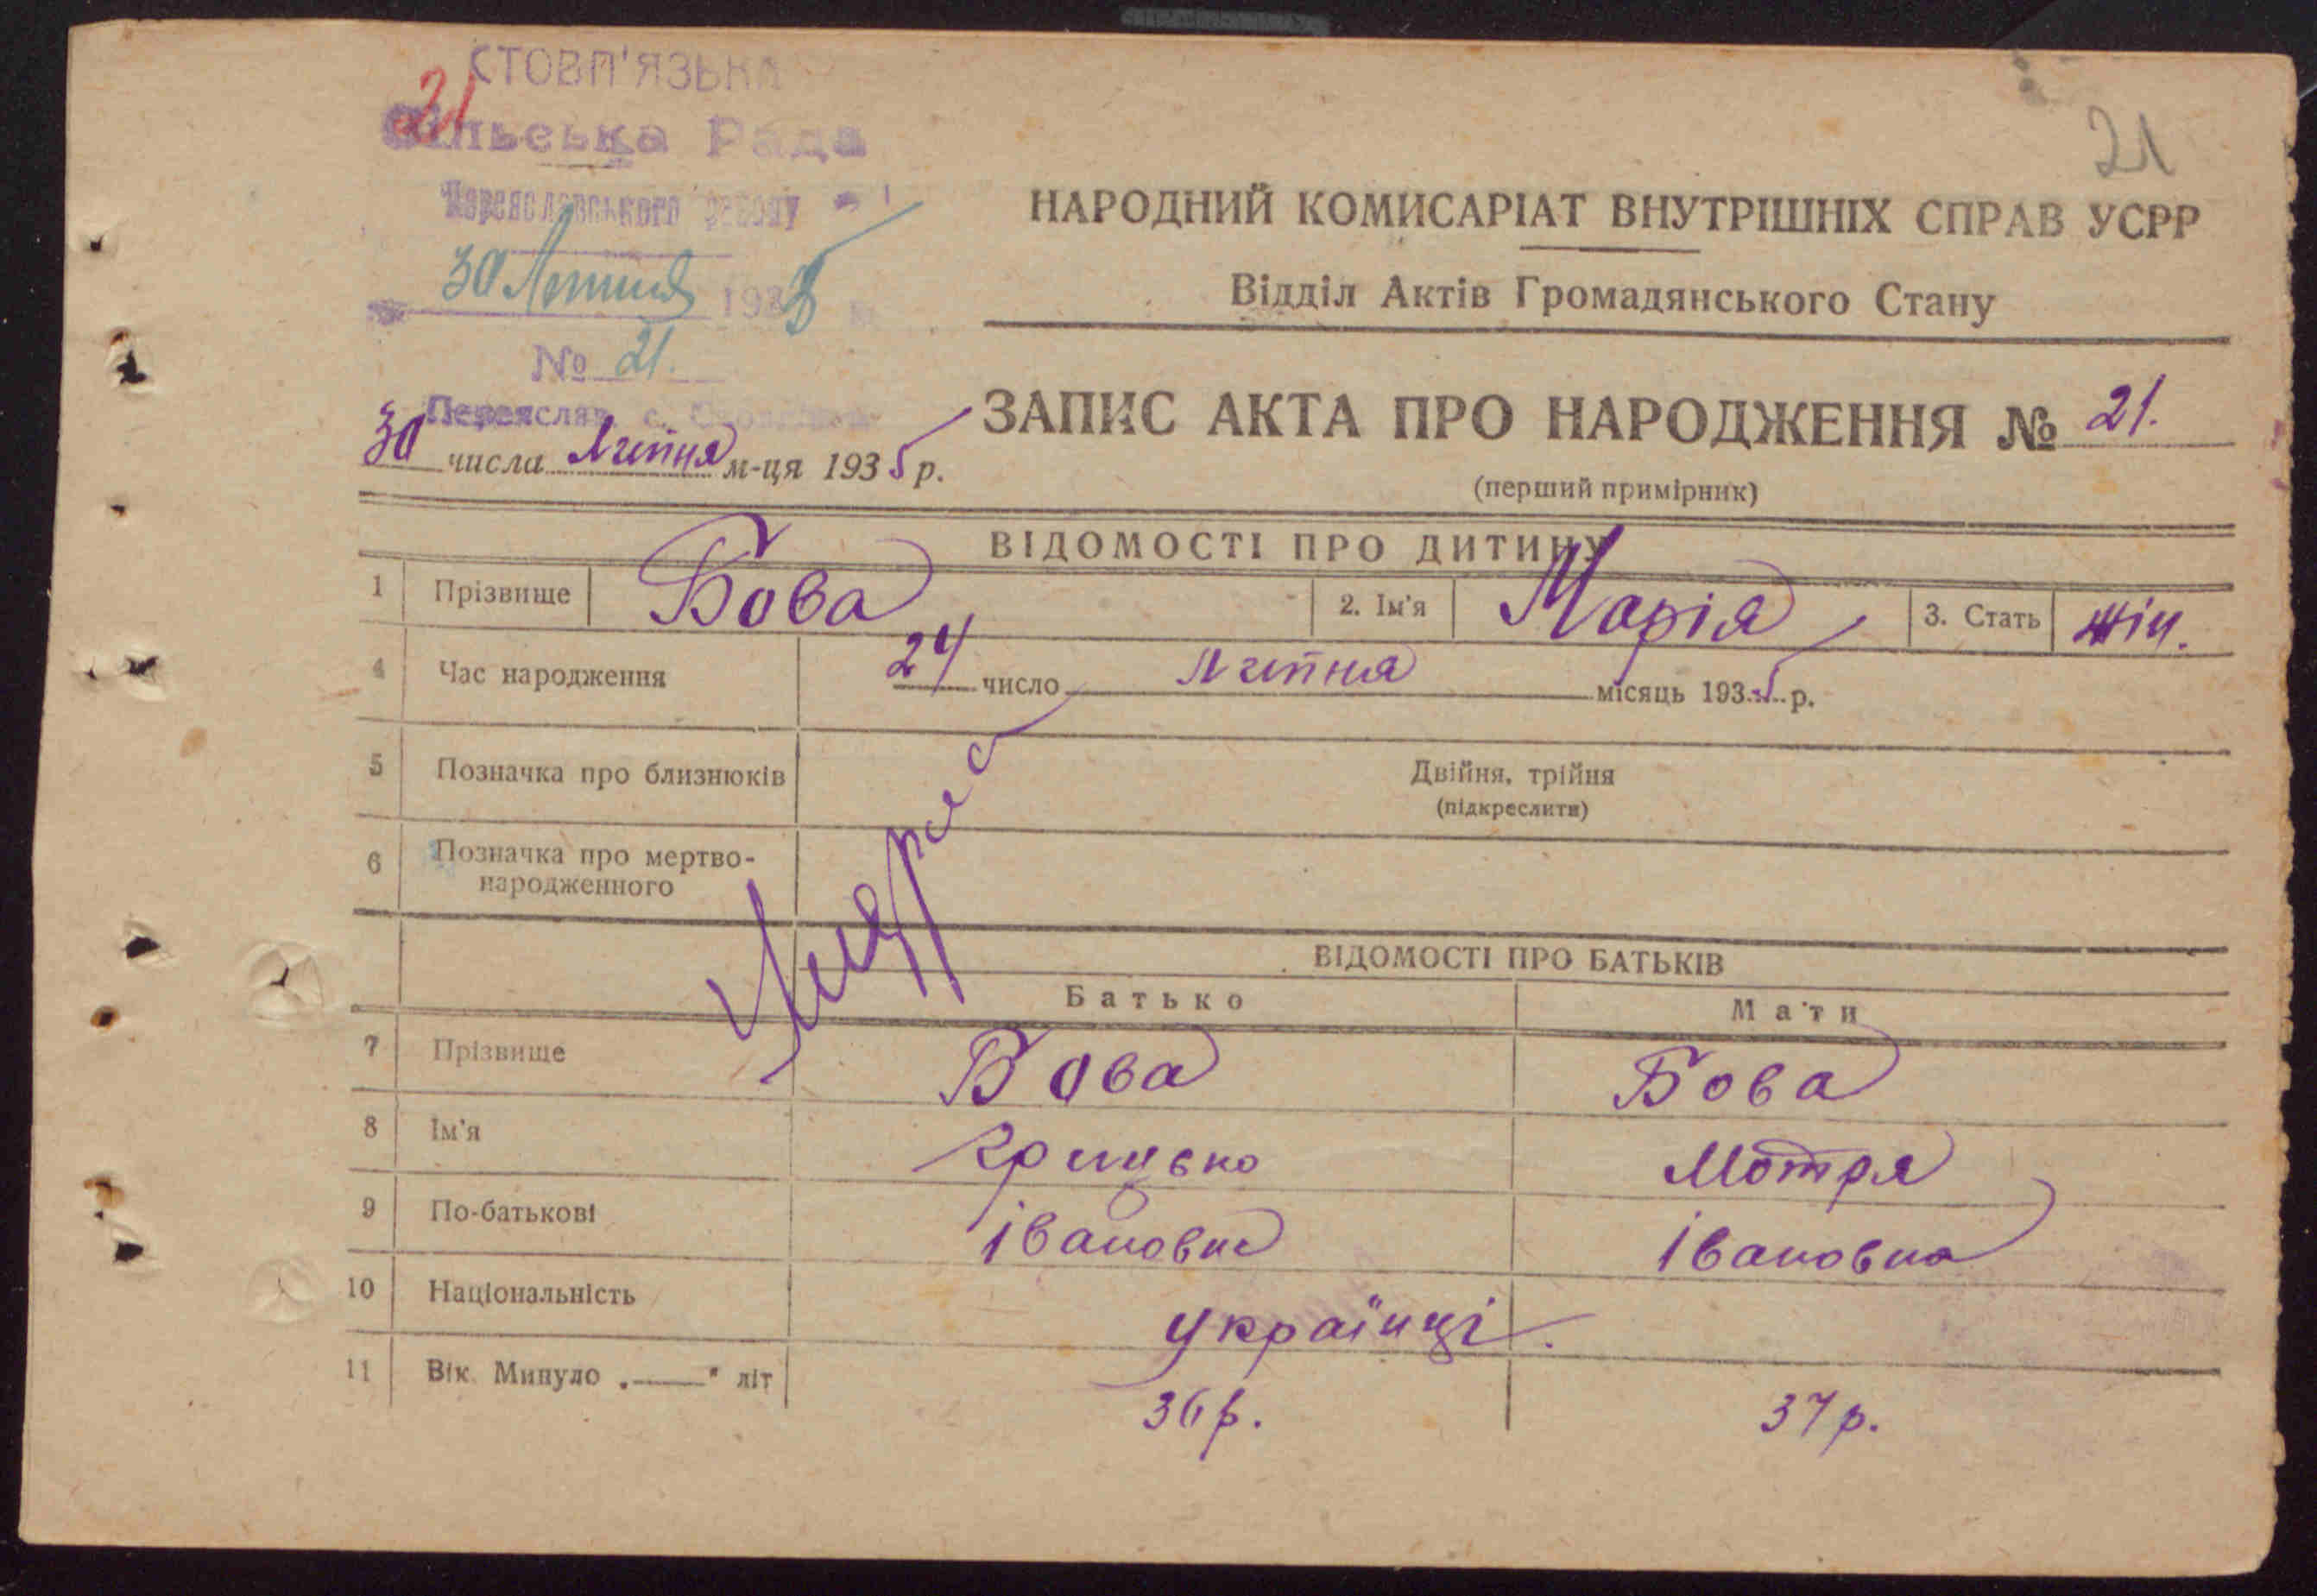 СТОВП'ЯЗЬКА
21
Сільська Рада
Переяславського району
21
30 Липня 1935
№ 21.
НАРОДНИЙ КОМИСАРІАТ ВНУТРІШНІХ СПРАВ УСРР
Відділ Актів Громадянського Стану
Переяслав с.
30 числа Липня м-ця 1935 р.
ЗАПИС АКТА ПРО НАРОДЖЕННЯ № 21.
(перший примірник)
ВІДОМОСТІ ПРО ДИТИНУ
1 Прізвище Бова 2. Ім'я Марія 3. Стать жін.
4 Час народження 24 число Липня місяць 1935 р.
5 Позначка про близнюків Двійня, трійня
(підкреслити)
6 Позначка про мертво-
народженного
ВІДОМОСТІ ПРО БАТЬКІВ
Батько Мати
7 Прізвище Бова Бова
8 Ім'я Грицько Мотря
9 По-батькові Івановис Івановна
10 Національність українці.
11 Вік. Минуло „——" літ 36 р. 37 р.